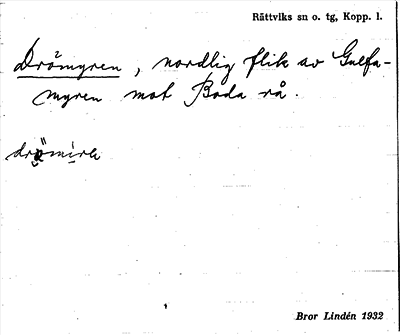 Rättviks sn o. tg, Kopp. l.
Drömyren, nordlig flik av Gulfa-
myren mot Boda rå.
Bror Lindén 1932